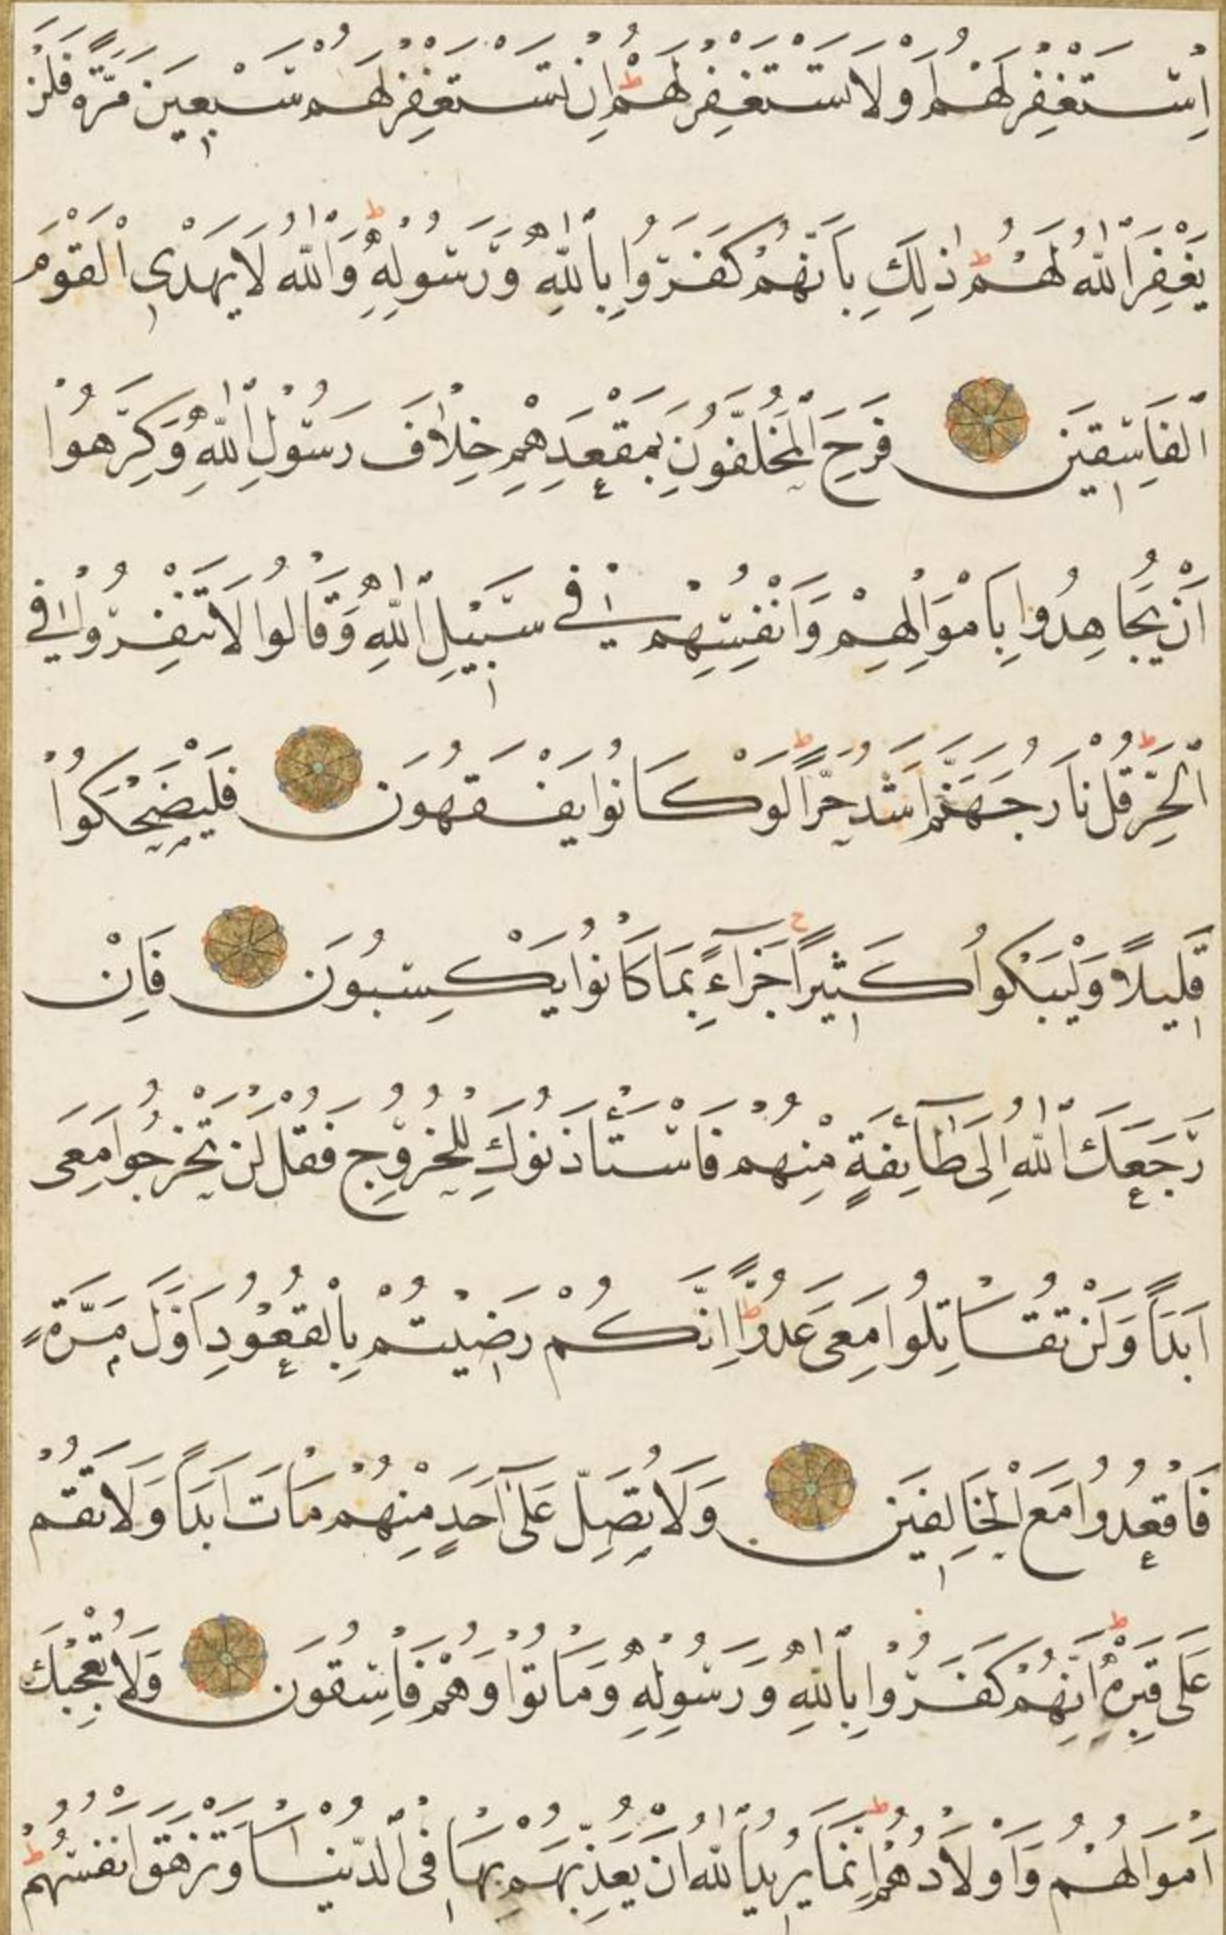 اِسْتَغْفِرْ لَهُمْ اَوْ لَا تَسْتَغْفِرْ لَهُمْ ط اِنْ تَسْتَغْفِرْ لَهُمْ سَبْعِينَ مَرَّةً فَلَنْ
يَغْفِرَ اللّٰهُ لَهُمْ ط ذٰلِكَ بِاَنَّهُمْ كَفَرُوا بِاللّٰهِ وَرَسُولِهِ ط وَاللّٰهُ لَا يَهْدِي الْقَوْمَ
الْفَاسِقِينَ فَرِحَ الْمُخَلَّفُونَ بِمَقْعَدِهِمْ خِلَافَ رَسُولِ اللّٰهِ وَكَرِهُوا
اَنْ يُجَاهِدُوا بِاَمْوَالِهِمْ وَاَنْفُسِهِمْ فِي سَبِيلِ اللّٰهِ وَقَالُوا لَا تَنْفِرُوا فِي
الْحَرِّ ط قُلْ نَارُ جَهَنَّمَ اَشَدُّ حَرًّا ط لَوْ كَانُوا يَفْقَهُونَ فَلْيَضْحَكُوا
قَلِيلًا وَلْيَبْكُوا كَثِيرًا ج جَزَاءً بِمَا كَانُوا يَكْسِبُونَ فَاِنْ
رَجَعَكَ اللّٰهُ اِلَى طَائِفَةٍ مِنْهُمْ فَاسْتَأْذَنُوكَ لِلْخُرُوجِ فَقُلْ لَنْ تَخْرُجُوا مَعِيَ
اَبَدًا وَلَنْ تُقَاتِلُوا مَعِيَ عَدُوًّا ط اِنَّكُمْ رَضِيتُمْ بِالْقُعُودِ اَوَّلَ مَرَّةٍ
فَاقْعُدُوا مَعَ الْخَالِفِينَ وَلَا تُصَلِّ عَلَى اَحَدٍ مِنْهُمْ مَاتَ اَبَدًا وَلَا تَقُمْ
عَلَى قَبْرِهِ ط اِنَّهُمْ كَفَرُوا بِاللّٰهِ وَرَسُولِهِ وَمَاتُوا وَهُمْ فَاسِقُونَ وَلَا تُعْجِبْكَ
اَمْوَالُهُمْ وَاَوْلَادُهُمْ ط اِنَّمَا يُرِيدُ اللّٰهُ اَنْ يُعَذِّبَهُمْ بِهَا فِي الدُّنْيَا وَتَزْهَقَ اَنْفُسُهُمْ ط